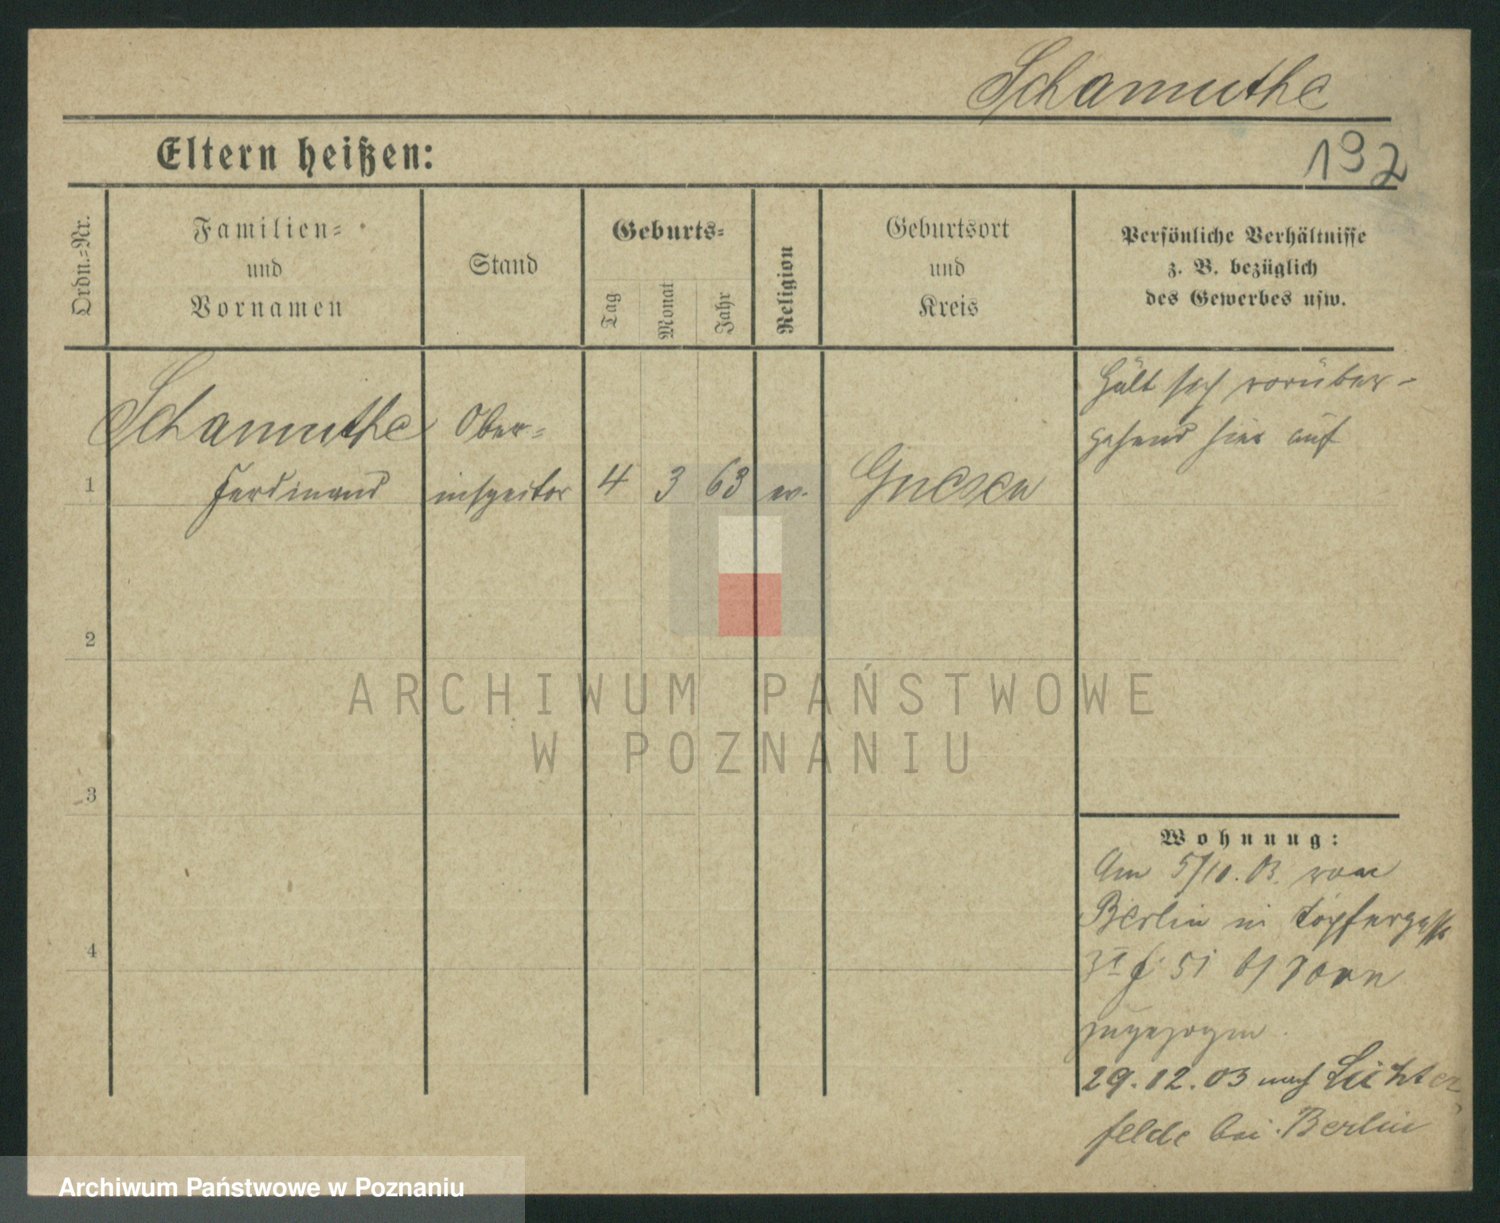 Schamuthe
Eltern heißen:
192
Ordn.-Nr.
Familien-
und
Vornamen
Stand
Geburts-
Tag
Monat
Jahr
Religion
Geburtsort
und
Kreis
Persönliche Verhältnisse
z. B. bezüglich
des Gewerbes usw.
1
Schamuthe
Ferdinand
Ober-
inspector
4
3
63
ev.
Gnesen
Hält sich vorüber-
gehend hier auf
2
3
4
Wohnung:
Am 5/10. 03. von
Berlin in Töpfergasse
3 51 b/
zugezogen.
29.12.03 nach Lichter
felde bei Berlin
ARCHIWUM PAŃSTWOWE
W POZNANIU
Archiwum Państwowe w Poznaniu